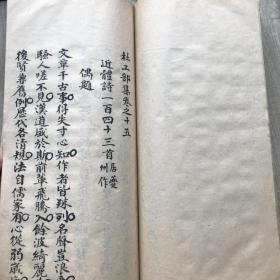 杜工部集卷之十五
近體詩一百四十三首居夔州作
偶題
文章千古事得失寸心知作者皆殊列名聲豈浪
騷人嗟不見漢道盛於斯前輩飛騰入餘波綺麗
後賢兼舊例歷代各清規法自儒家有心從弱歲